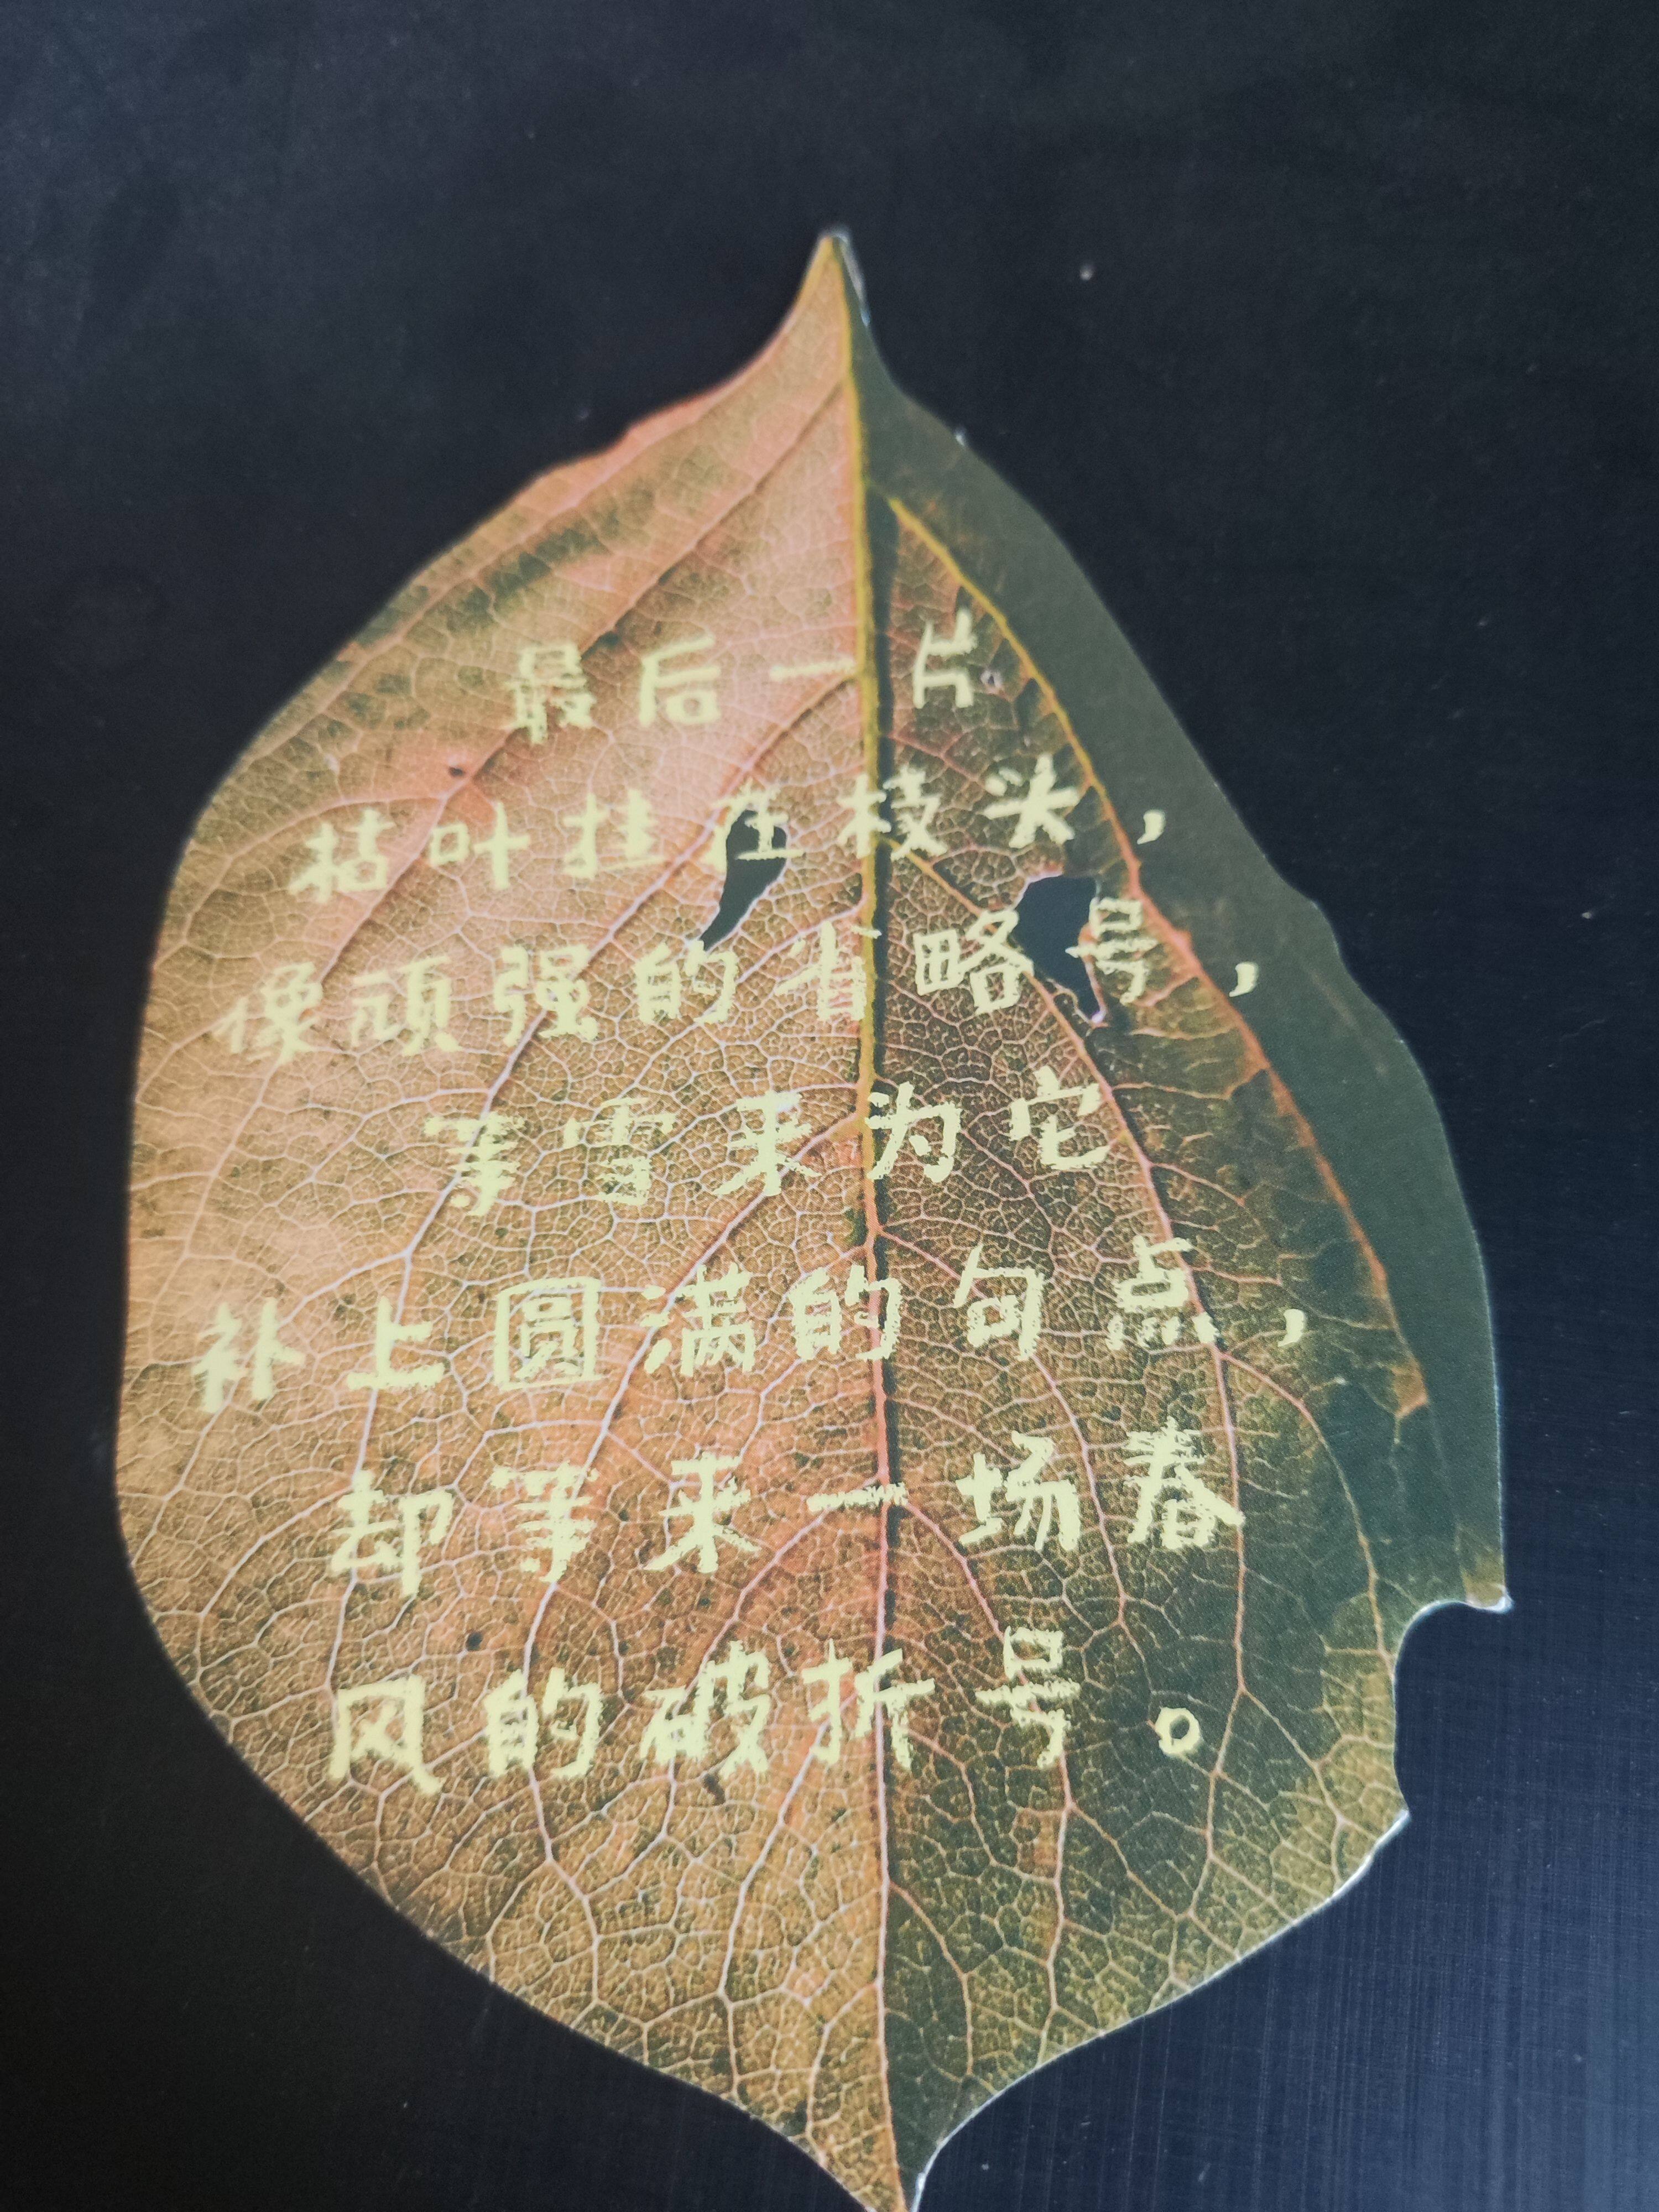 最后一片
枯叶挂在枝头，
像顽强的省略号，
等雪来为它
补上圆满的句点，
却等来一场春
风的破折号。